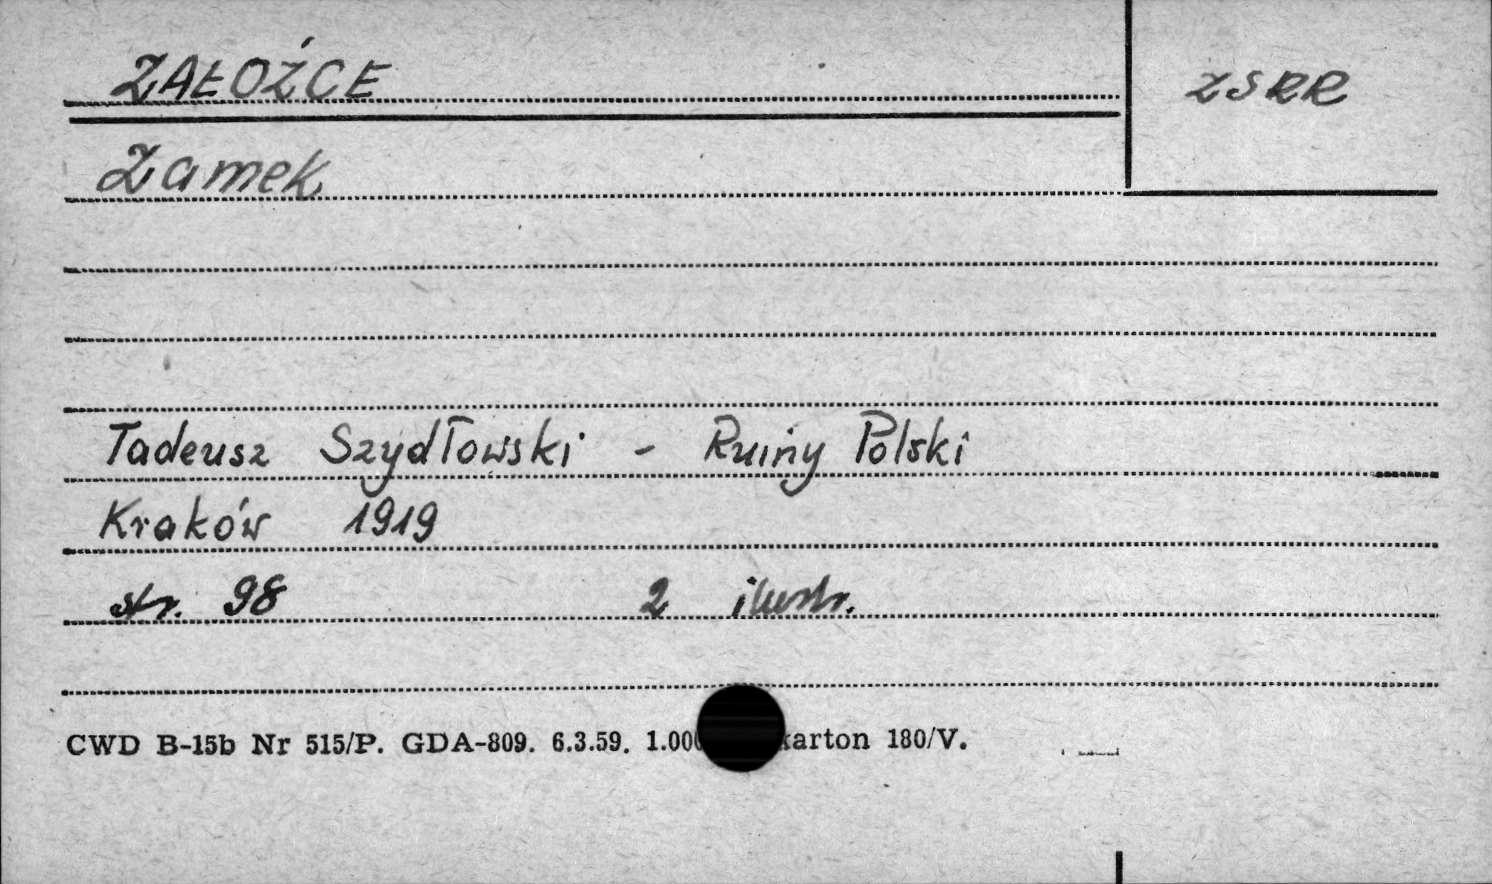 ZAŁOŹCE
ZSRR
Zamek
Tadeusz Szydłowski - Ruiny Polski
Kraków 1919
str. 98 2 ilustr.
CWD B-15b Nr 515/P. GDA-809. 6.3.59. karton 180/V.